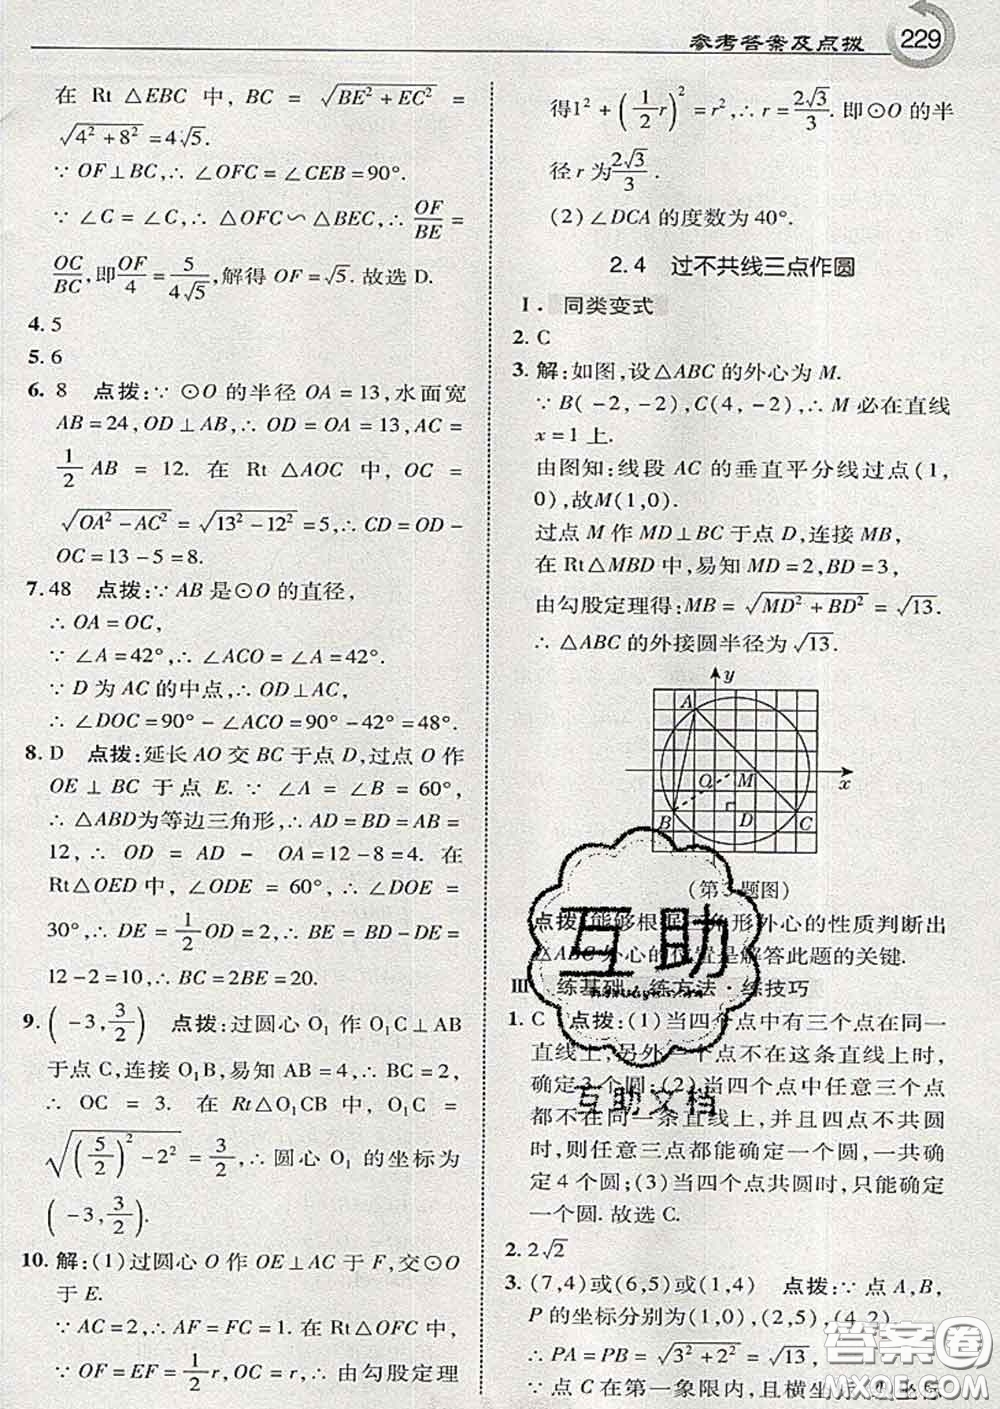 参考答案及点拨 229
在 Rt △EBC 中, BC = √(BE² + EC²) =
√(4² + 8²) = 4√5.
∵ OF⊥BC,∴ ∠OFC = ∠CEB = 90°.
∵ ∠C = ∠C,∴ △OFC∽△BEC,∴ OF/BE =
OC/BC,即 OF/4 = 5/(4√5),解得 OF = √5. 故选 D.
4. 5
5. 6
6. 8 点拨:∵ ⊙O 的半径 OA = 13,水面宽
AB = 24,OD⊥AB,∴ OD = OA = 13,AC =
1/2 AB = 12. 在 Rt △AOC 中, OC =
√(OA² − AC²) = √(13² − 12²) = 5,∴ CD = OD −
OC = 13 − 5 = 8.
7. 48 点拨:∵ AB 是⊙O 的直径,
∴ OA = OC,
∵ ∠A = 42°,∴ ∠ACO = ∠A = 42°.
∵ D 为 AC 的中点,∴ OD⊥AC,
∴ ∠DOC = 90° − ∠ACO = 90° − 42° = 48°.
8. D 点拨:延长 AO 交 BC 于点 D,过点 O 作
OE⊥BC 于点 E. ∵ ∠A = ∠B = 60°,
∴ △ABD为等边三角形,∴ AD = BD = AB =
12,∴ OD = AD − OA = 12 − 8 = 4. 在
Rt△OED 中, ∠ODE = 60°,∴ ∠DOE =
30°,∴ DE = 1/2 OD = 2,∴ BE = BD − DE =
12 − 2 = 10,∴ BC = 2BE = 20.
9. (−3, 3/2) 点拨:过圆心 O₁ 作 O₁C⊥AB
于点 C,连接 O₁B,易知 AB = 4,∴ BC = 2,
∴ OC = 3. 在 Rt△O₁CB 中, O₁C =
√((5/2)² − 2²) = 3/2,∴ 圆心 O₁ 的坐标为
(−3, 3/2).
10. 解:(1)过圆心 O 作 OE⊥AC 于 F,交⊙O
于 E.
∵ AC = 2,∴ AF = FC = 1. 在 Rt△OFC 中,
∵ OF = EF = 1/2 r,OC = r,∴ 由勾股定理
得1² + (1/2 r)² = r²,∴ r = 2√3/3. 即⊙O 的半
径 r 为 2√3/3.
(2)∠DCA 的度数为 40°.
2.4 过不共线三点作圆
Ⅰ. 同类变式
2. C
3. 解:如图,设△ABC 的外心为 M.
∵ B(−2,−2),C(4,−2),∴ M 必在直线
x = 1 上.
由图知:线段 AC 的垂直平分线过点(1,
0),故M(1,0).
过点 M 作 MD⊥BC 于点 D,连接 MB,
在 Rt△MBD 中,易知 MD = 2,BD = 3,
由勾股定理得:MB = √(MD² + BD²) = √13.
∴ △ABC 的外接圆半径为√13.
y
A
O M x
B D C
(第3题图)
点拨:能够根据三角形外心的性质判断出
△ABC 外心的位置是解答此题的关键.
Ⅲ 练基础·练方法·练技巧
1. C 点拨:(1)当四个点中有三个点在同一
直线上,另外一个点不在这条直线上时,
确定3个圆;(2)当四个点中任意三个点
都不在同一条直线上,并且四点不共圆
时,则任意三点都能确定一个圆,一共确
定 4 个圆;(3)当四个点共圆时,只能确定
一个圆. 故选 C.
2. 2√2
3. (7,4)或(6,5)或(1,4) 点拨:∵ 点 A,B,
P 的坐标分别为(1,0),(2,5),(4,2).
∴ PA = PB = √(3² + 2²) = √13,
∵ 点 C 在第一象限内,且横坐标
互助
互助文档
答案圈
MXQE.COM